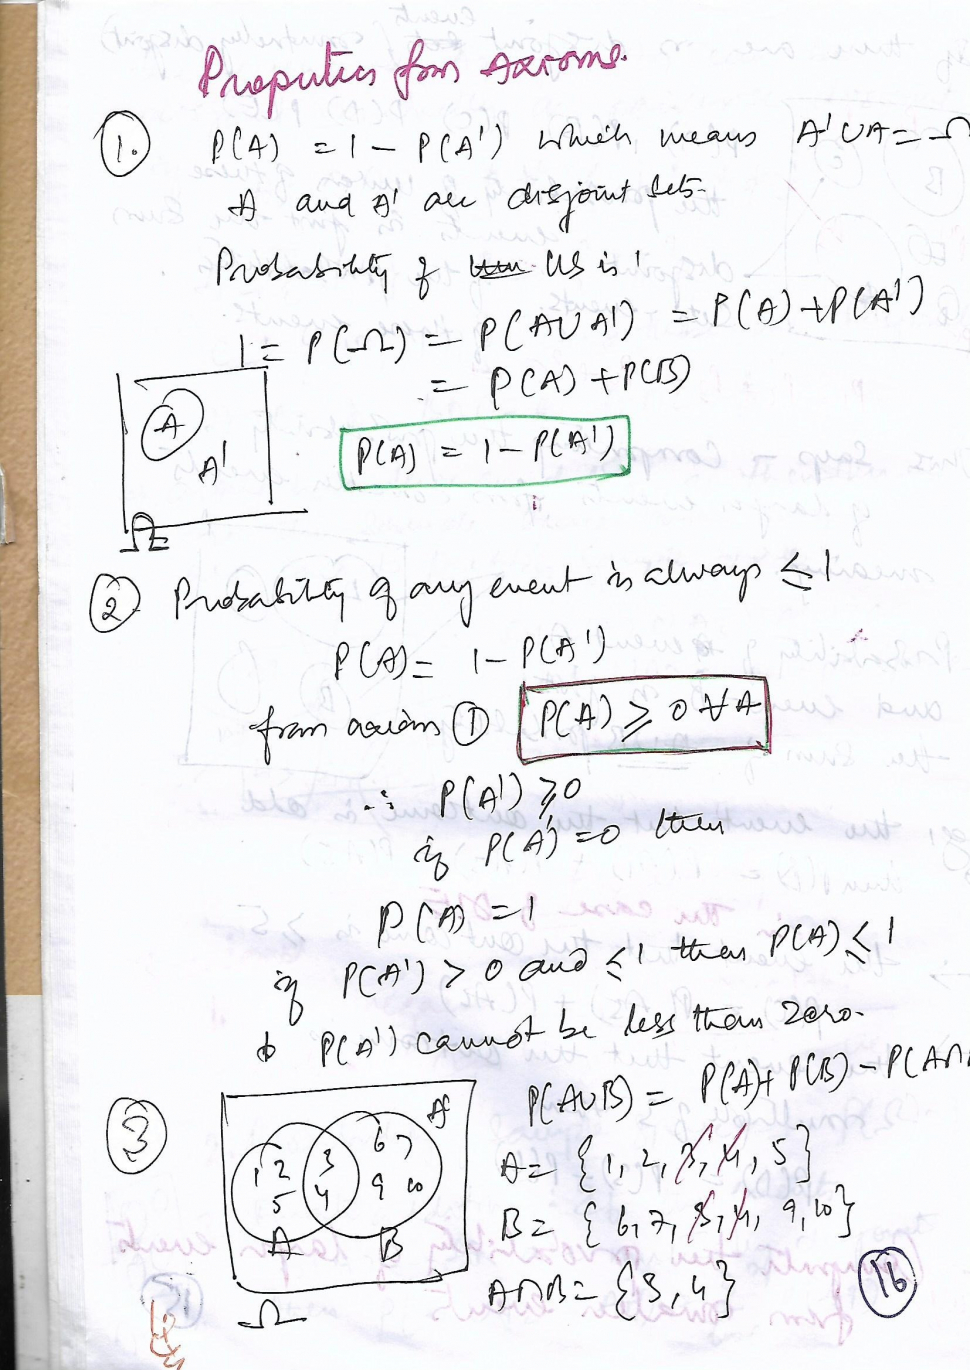 Properties from Axioms.
1. P(A) = 1 - P(A') which means A'UA = Ω
A and A' are disjoint sets.
Probability of US is 1
1 = P(Ω) = P(A∪A') = P(A)+P(A')
= P(A) + P(B)
P(A) = 1 - P(A')
A
A'
Ω
2 Probability of any event is always ≤ 1
P(A) = 1 - P(A')
from axiom 1 P(A) ≥ 0 ∀ A
∴ P(A') ≥ 0
if P(A') = 0 then
P(A) = 1
if P(A') > 0 and ≤ 1 then P(A) ≤ 1
P(A') cannot be less than zero.
3 P(A∪B) = P(A)+ P(B) - P(A∩
A = {1, 2, 3, 4, 5}
B = {6, 7, 3, 4, 9, 10}
A∩B = {3, 4}
1 2 5 3 4 6 7 9 10
A B
Ω
16